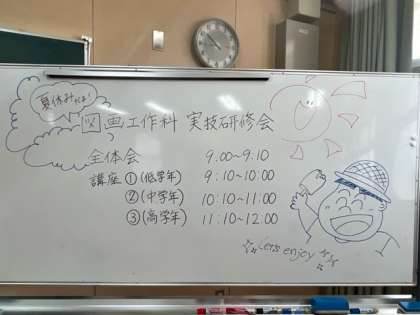 夏休みだよ!
図画工作科 実技研修会
全体会 9:00~9:10
講座 ①(低学年) 9:10~10:00
②(中学年) 10:10~11:00
③(高学年) 11:10~12:00
Let's enjoy